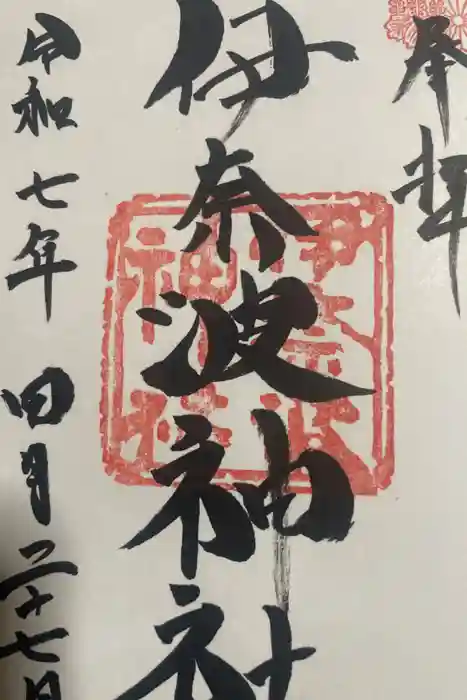 奉拝
伊奈波神社
伊奈波
神社
令和七年 四月二十七日